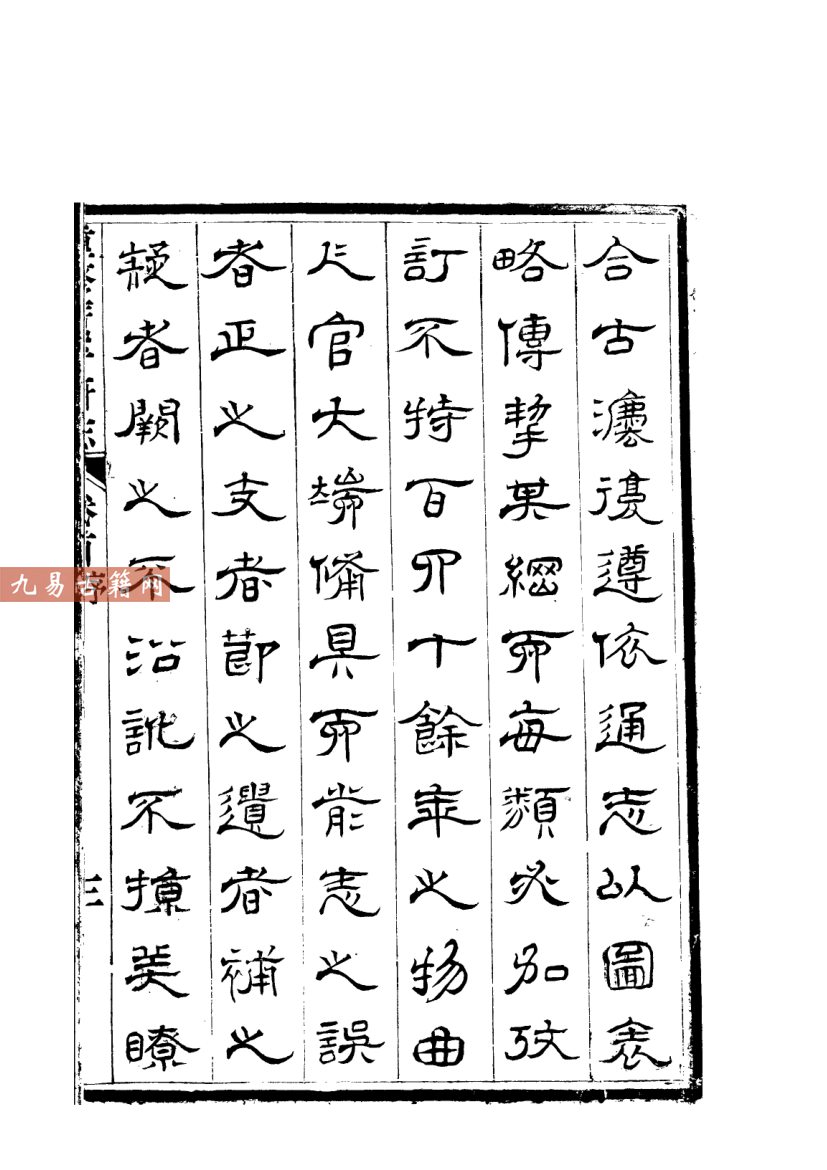 合古灋復遵依通志以圖表
略傳挈其綱而每類必加攷
訂不特百四十餘年之物曲
人官大端備具而前志之誤
者正之支者節之遺者補之
疑者闕之不沿訛不掠美瞭
府志 卷首 序 三
九易古籍网